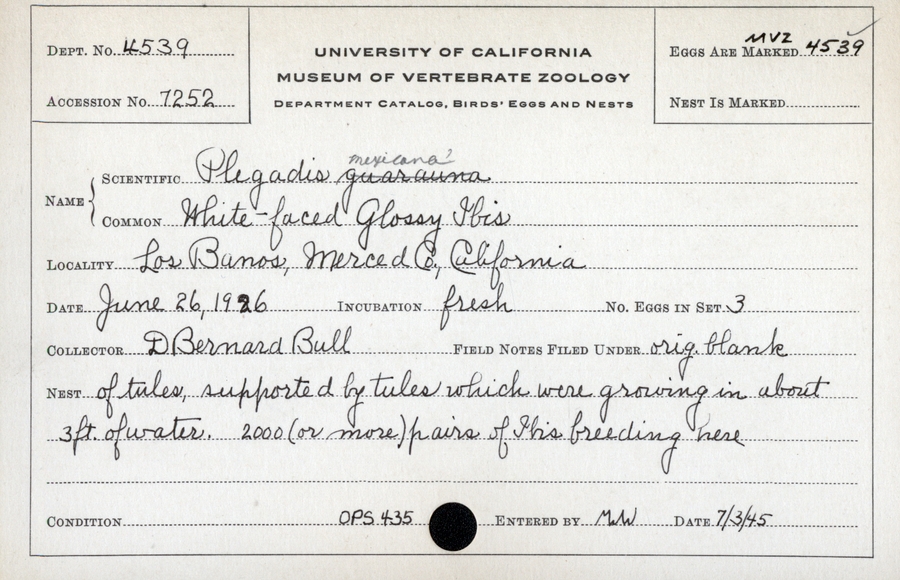 DEPT. No. 4539
UNIVERSITY OF CALIFORNIA
MUSEUM OF VERTEBRATE ZOOLOGY
DEPARTMENT CATALOG, BIRDS' EGGS AND NESTS
MVZ
EGGS ARE MARKED 4539
ACCESSION No. 7252
NEST IS MARKED
mexicana?
NAME SCIENTIFIC Plegadis guarauna
COMMON White-faced Glossy Ibis
LOCALITY Los Banos, Merced Co., California
DATE June 26, 1926 INCUBATION fresh No. EGGS IN SET 3
COLLECTOR D Bernard Bull FIELD NOTES FILED UNDER orig. blank
NEST of tules, supported by tules which were growing in about
3ft. of water. 2000 (or more) pairs of Ibis breeding here
CONDITION OPS 435 ENTERED BY MW DATE 7/3/45